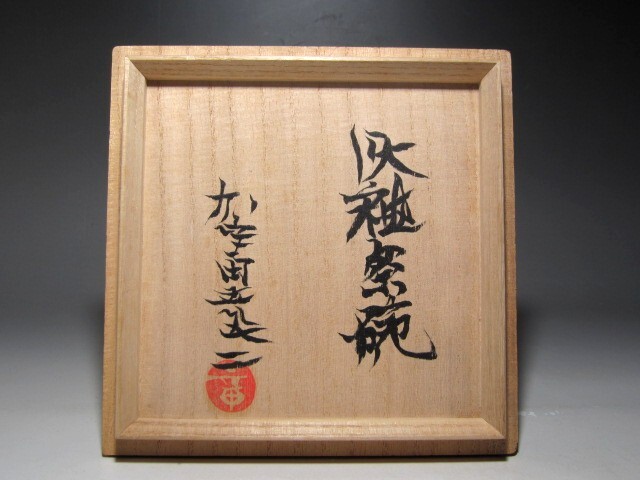 灰釉茶碗
加守田章二